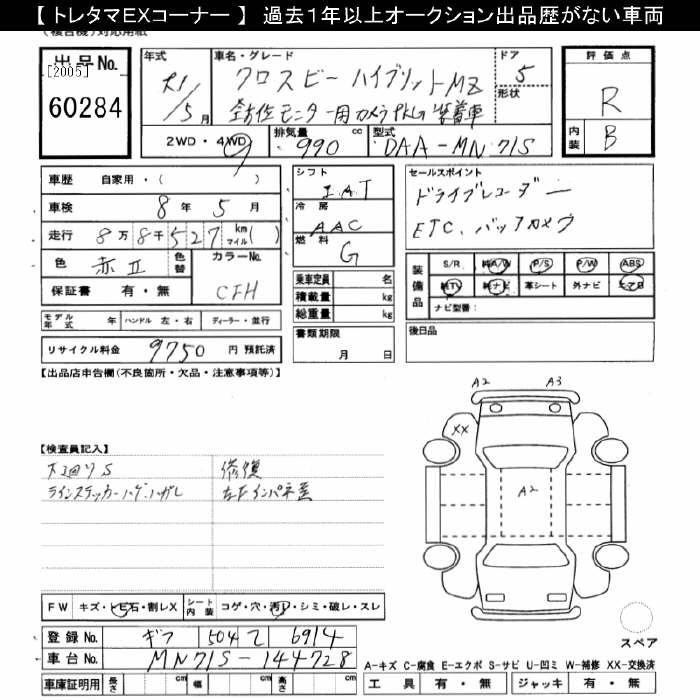 【 トレタマEXコーナー 】 過去1年以上オークション出品歴がない車両
(複合機)対応用紙
出品No.
[2005]
60284
年式
R1/5月
車名・グレード
クロスビー ハイブリットMZ
全方位モニター用カメラPKG 装着車
ドア
5
形状
2WD・4WD
排気量
990 cc
型式
DAA-MN71S
評価点
R
内装
B
車歴 自家用・( )
車検 8年 5月
走行 8万8千527 km マイル( )
色 赤Ⅱ
色替
カラーNo.
CFH
保証書 有・無
シフト
IAT
冷房
AAC
燃料
G
乗車定員 名
積載量 kg
総重量 kg
セールスポイント
ドライブレコーダー
ETC、バックカメラ
装備品
S/R 純A/W P/S P/W ABS
純TV 純ナビ 革シート 外ナビ エアB
ナビ型番:
モデル年式 年 ハンドル 左・右 ディーラー・並行
リサイクル料金 9750 円 預託済
書類期限
月 日
後日品
【出品店申告欄(不良箇所・欠品・注意事項等)】
A2 A3
XX
A2
【検査員記入】
下廻りS
ラインステッカーハゲ・ハガレ
修復
左右インパネ差
FW キズ・トビ石・割レX シート内装 コゲ・穴・汚レ・シミ・破レ・スレ
登録No. ギフ 504 て 6914
車台No. MN71S-144728
車庫証明用 長さ cm 幅 cm 高さ cm
スペア
A-キズ C-腐食 E-エクボ S-サビ U-凹ミ W-補修 XX-交換済
工具 有・無 ジャッキ 有・無